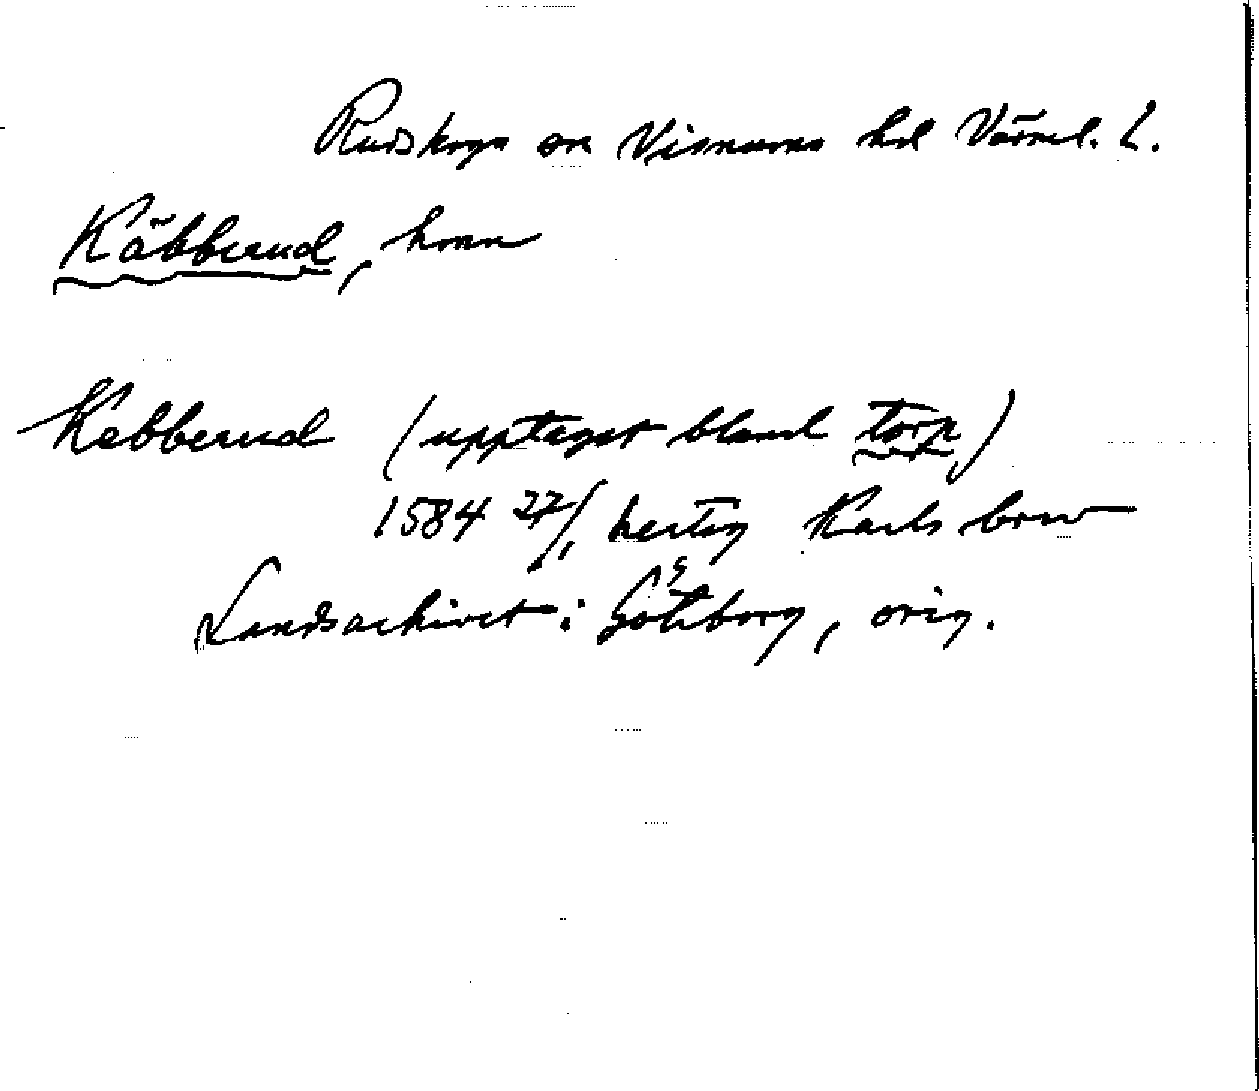 Rudskoga sn Visnums hd Värml. L.
Käbberud, hmn
Kebberud (upptaget bland torp)
1584 27/1 hertig Karls brev
Landsarkivet i Göteborg, orig.